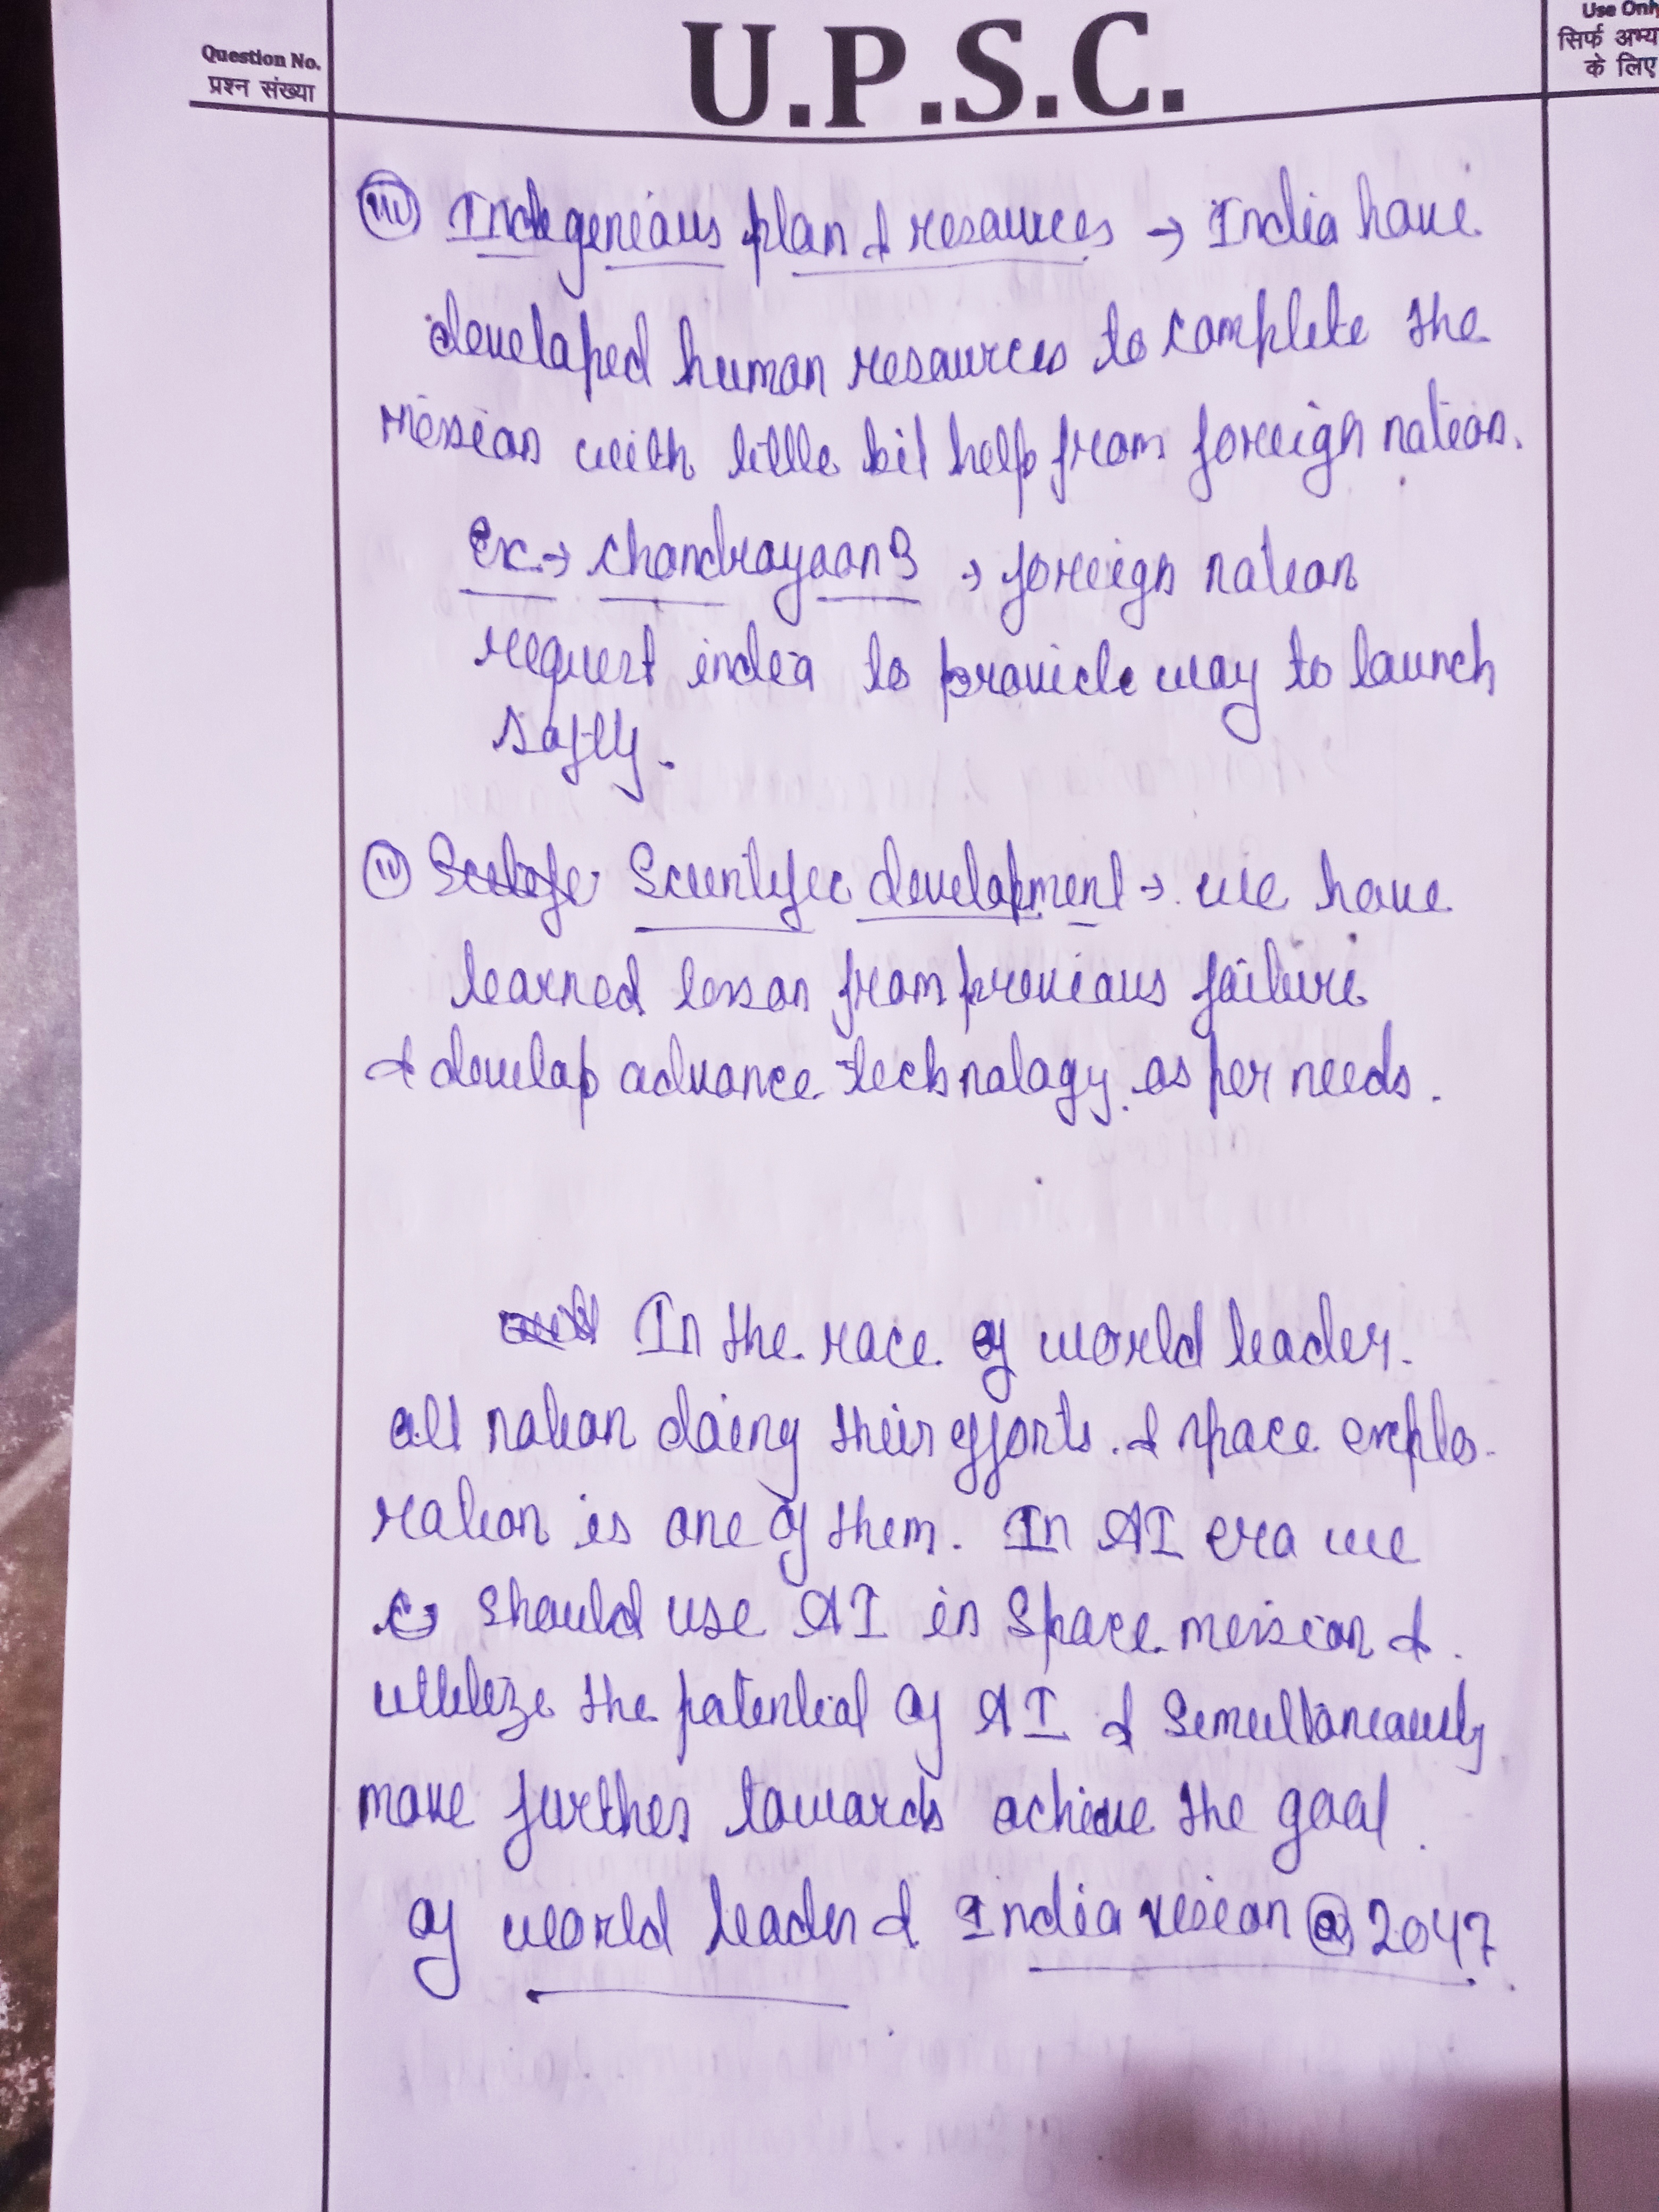 Question No.
प्रश्न संख्या
U.P.S.C.
Use Only
सिर्फ अभ्य
के लिए
(iii) Indegenious plan & resources → India have
developed human resources to complete the
mission with little bit help from foreign nation.
ex → chandrayaan 3 → foreign nation
request india to provide way to launch
safly.
(iv) Scientific development → we have
learned lesson from previous failure
& develop advance technology as per needs.
In the race of world leader
all nation doing their efforts & space explo-
ration is one of them. In AI era we
should use AI in space mission &
utilize the potential of AI & simultaneously
move further towards achieve the goal
of world leader & India vision @ 2047.